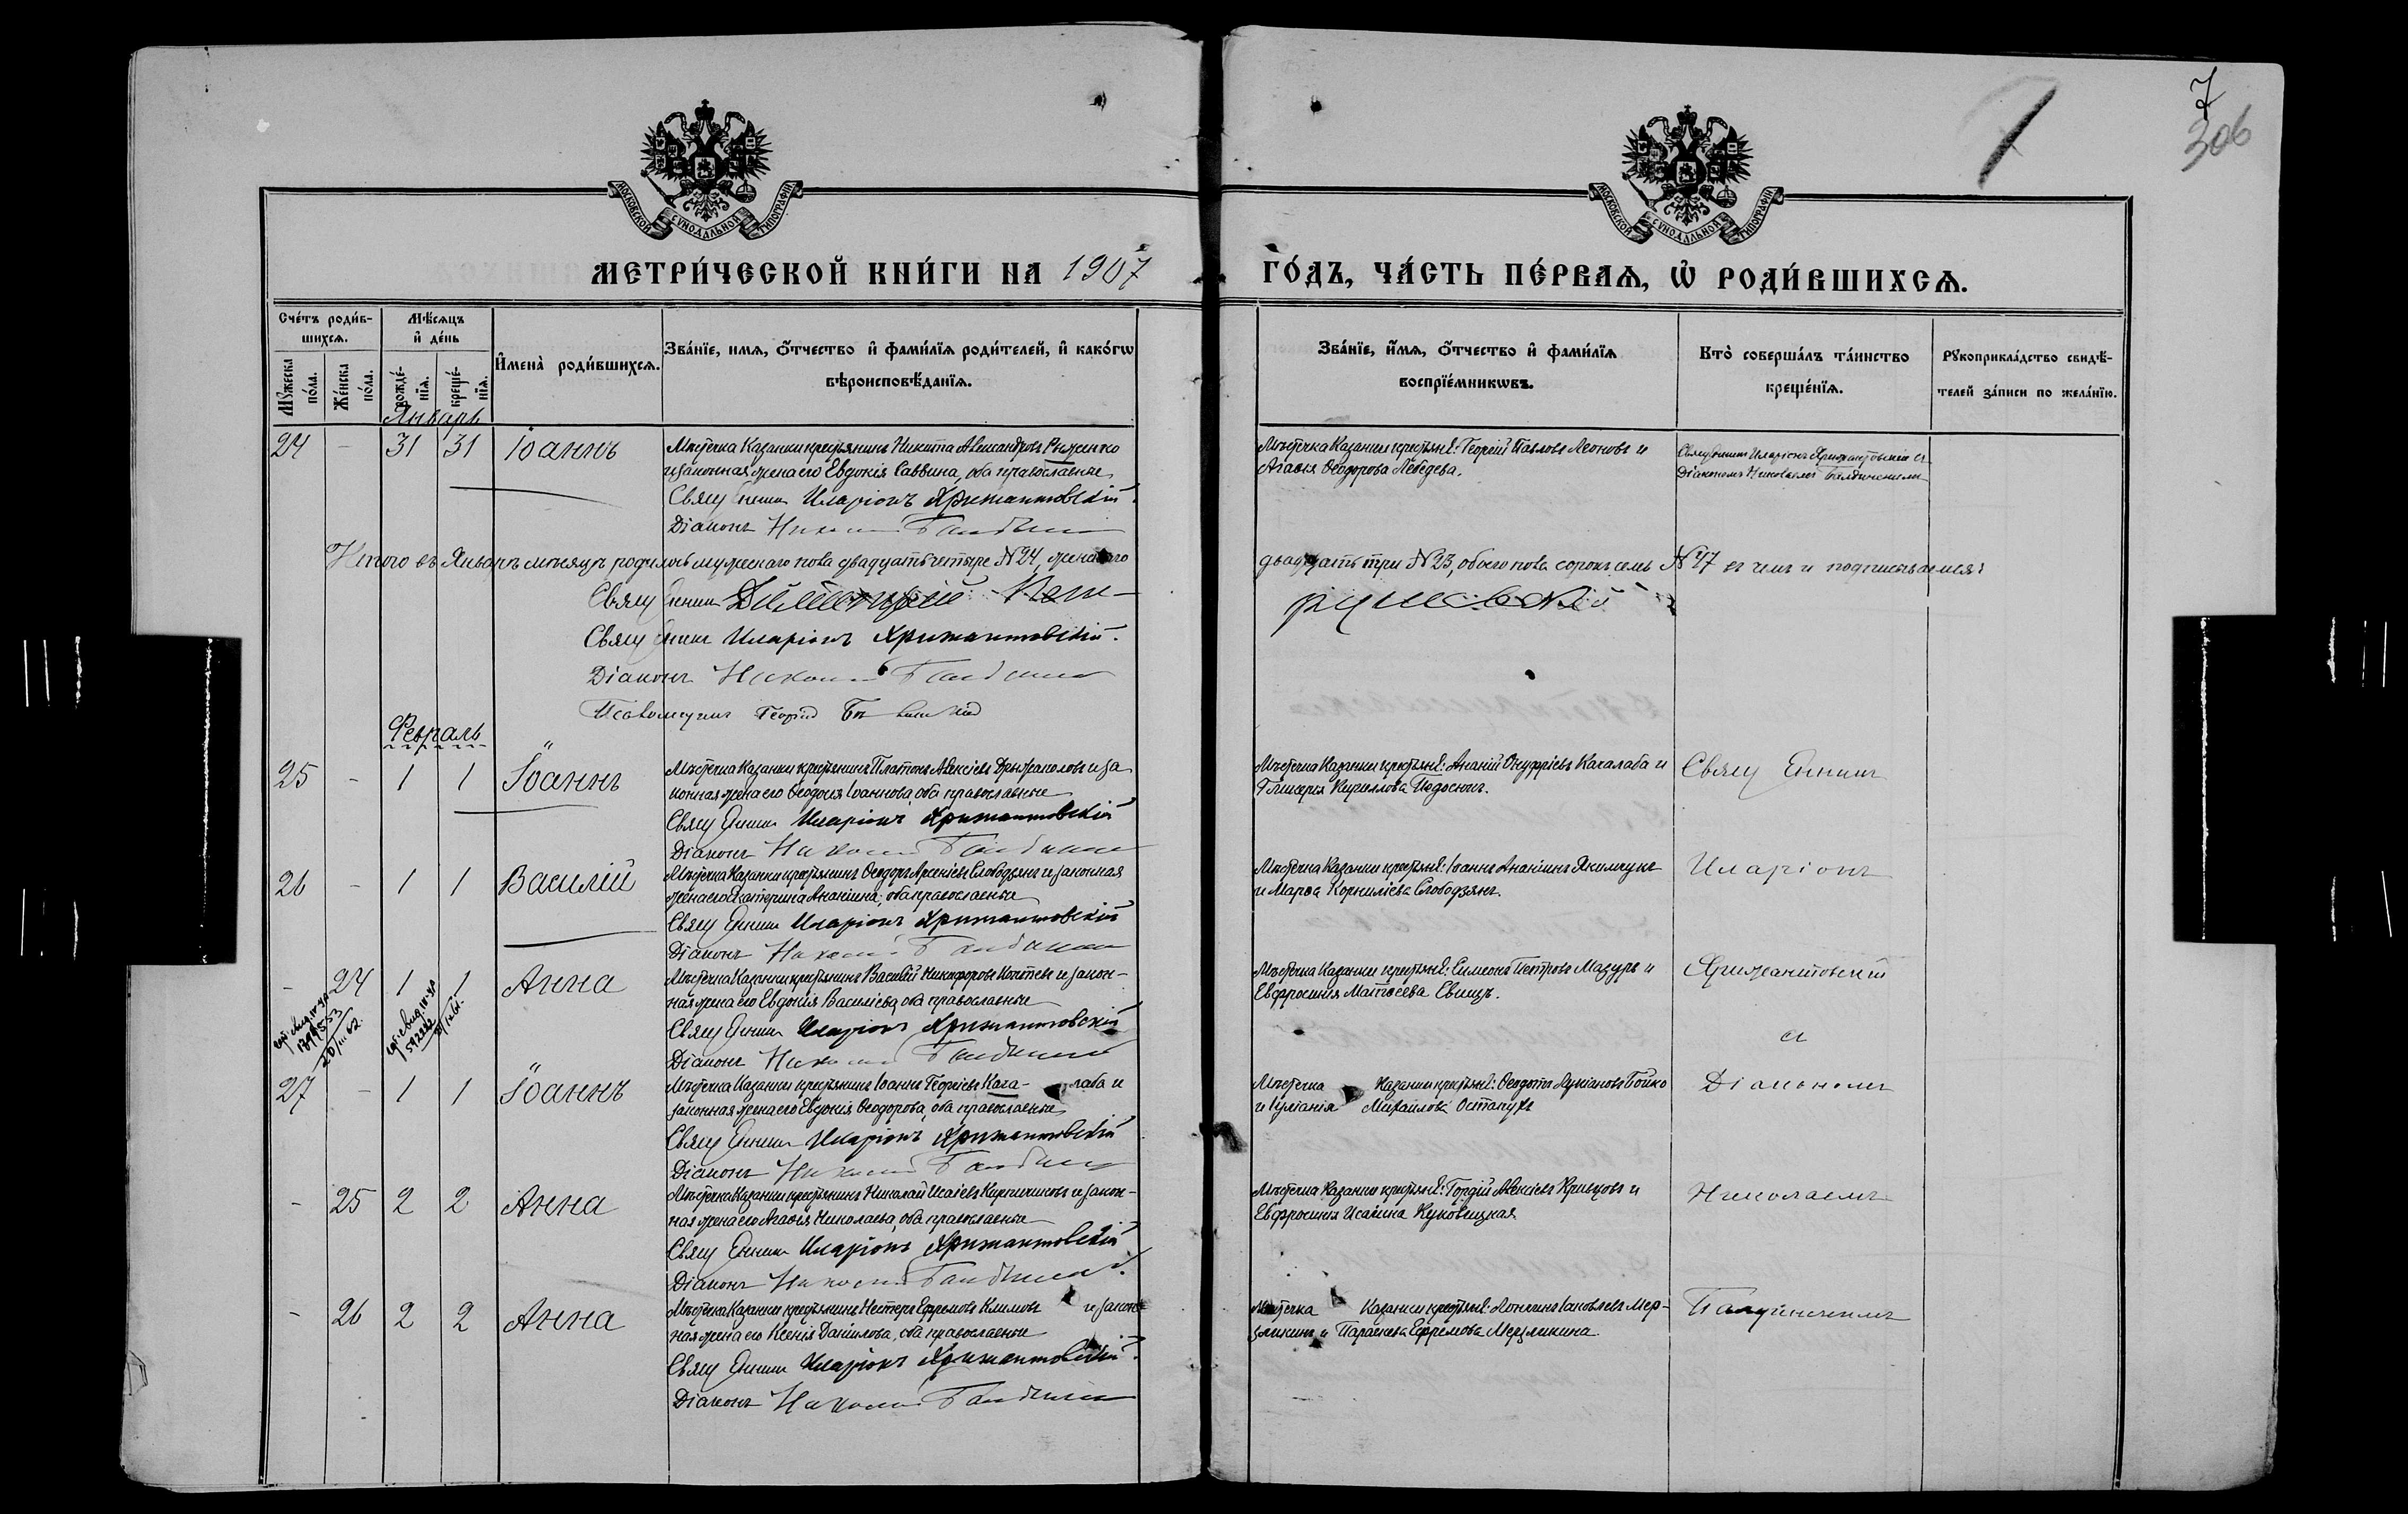 7
306
7
МОСКОВСКОЙ СУНОДАЛЬНОЙ ТИПОГРАФІИ
МОСКОВСКОЙ СУНОДАЛЬНОЙ ТИПОГРАФІИ
МЕТРИ́ЧЕСКОЙ КНИ́ГИ НА 1907
ГО́ДЪ, ЧА́СТЬ ПЕ́РВАѦ, Ѡ҆ РОДИ́ВШИХСѦ.
Сче́тъ роди́в-
шихсѧ.
Мѣ́сѧцъ
и҆ де́нь
Мꙋ́жеска
по́ла.
Же́нска
по́ла.
рожде́-
нїѧ.
креще́-
нїѧ.
И҆мена̀ роди́вшихсѧ.
Зва́нїе, имѧ, ѻ҆́тчество и҆ фами́лїѧ роди́телей, и҆ како́гѡ
вѣроисповѣ́данїѧ.
Зва́нїе, и҆́мѧ, ѻ҆́тчество и҆ фами́лїѧ
воспрїе́мникѡвъ.
Кто̀ соверша́лъ та́инство
креще́нїѧ.
Рꙋкоприкла́дство свидѣ́-
телей за́писи по жела́нїю.
Январь
24 - 31 31 Іоаннъ
Мѣстечка Казанки крестьянинъ Никита Александровъ Рыженко
и законная жена его Евдокія Саввина, оба православные
Священникъ Иларіонъ Хрижантовскій.
Діаконъ Николай
Мѣстечка Казанки крестьян.: Георгій Павловъ Леоновъ и
Агафія Ѳеодорова Лебедева.
Священникъ Иларіонъ Хрижантовскій съ
Діакономъ Николаемъ
Итого въ Январѣ мѣсяцѣ родилось мужескаго пола двадцать четыре №24, женскаго
двадцать три №23, обоего пола сорокъ семь №47 въ чемъ и подписываемся:
Священникъ Димитрій
Священникъ Иларіонъ Хрижантовскій.
Діаконъ Николай
Псаломщикъ Георгій
Февраль
25 - 1 1 Іоаннъ
Мѣстечка Казанки крестьянинъ Платонъ Алексіевъ и за
конная жена его Ѳеодосія Іоаннова, оба православные
Священникъ Иларіонъ Хрижантовскій
Діаконъ Николай
Мѣстечка Казанки крестьян.: Ананій Онуфріевъ Кагалаба и
Гликерія Кириллова
Священникъ
26 - 1 1 Василій
Мѣстечка Казанки крестьянинъ Ѳеодоръ Арсеніевъ Слободзянъ и законная
жена его Екатерина Ананіина, оба православные
Священникъ Иларіонъ Хрижантовскій
Діаконъ Николай
Мѣстечка Казанки крестьян.: Іоаннъ Ананіинъ Якимчукъ
и Марѳа Корниліева Слободзянъ.
Иларіонъ
- 24 1 1 Анна
Мѣстечка Казанки крестьянинъ Василій Никифоровъ и закон-
ная жена его Евдокія Василіева, оба православные
Священникъ Иларіонъ Хрижантовскій
Діаконъ Николай
Мѣстечка Казанки крестьян.: Симеонъ Петровъ Мазуръ и
Евфросинія Матѳеева
Хрижантовскій
съ
27 - 1 1 Іоаннъ
Мѣстечка Казанки крестьянинъ Іоаннъ Георгіевъ Кага- лаба и
законная жена его Евдокія Ѳеодорова, оба православные
Священникъ Иларіонъ Хрижантовскій
Діаконъ Николай
Мѣстечка Казанки крестьян.: Ѳеодотъ Лукіановъ Бойко
и Іуліанія Михайлова Остапукъ
Діакономъ
- 25 2 2 Анна
Мѣстечка Казанки крестьянинъ Николай Исаіевъ Кирпичиковъ и закон-
ная жена его Агафія Николаева, оба православные
Священникъ Иларіонъ Хрижантовскій
Діаконъ Николай
Мѣстечка Казанки крестьян.: Гордій Алексіевъ Кривцовъ и
Евфросинія Исаіина
Николаемъ
- 26 2 2 Анна
Мѣстечка Казанки крестьянинъ Несторъ Ефремовъ Климовъ и закон-
ная жена его Ксенія Даніилова, оба православные
Священникъ Иларіонъ Хрижантовскій.
Діаконъ Николай
Мѣстечка Казанки крестьян.: Лонгинъ Іаковлевъ Мер-
зликинъ и Параскева Ефремова Мерзликина.